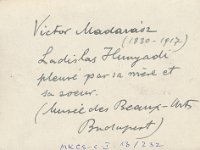 Victor Madarász
(1830-1917)
Ladislas Hunyadi
pleuré par sa mère et
sa soeur.
(Musée des Beaux-Arts
Budapest)